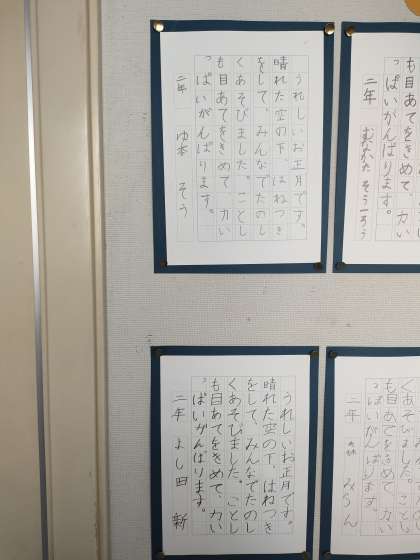 うれしいお正月です。
晴れた空の下、はねつき
をして、みんなでたのし
くあそびました。ことし
も目あてをきめて、力い
っぱいがんばります。
二年 ゆ本 そう
も目あてをきめて、力い
っぱいがんばります。
二年 むなかた そう一ろう
うれしいお正月です。
晴れた空の下、はねつき
をして、みんなでたのし
くあそびました。ことし
も目あてをきめて、力い
っぱいがんばります。
二年 よし田 新
くあそびました。ことし
も目あてをきめて、力い
っぱいがんばります。
二年 森